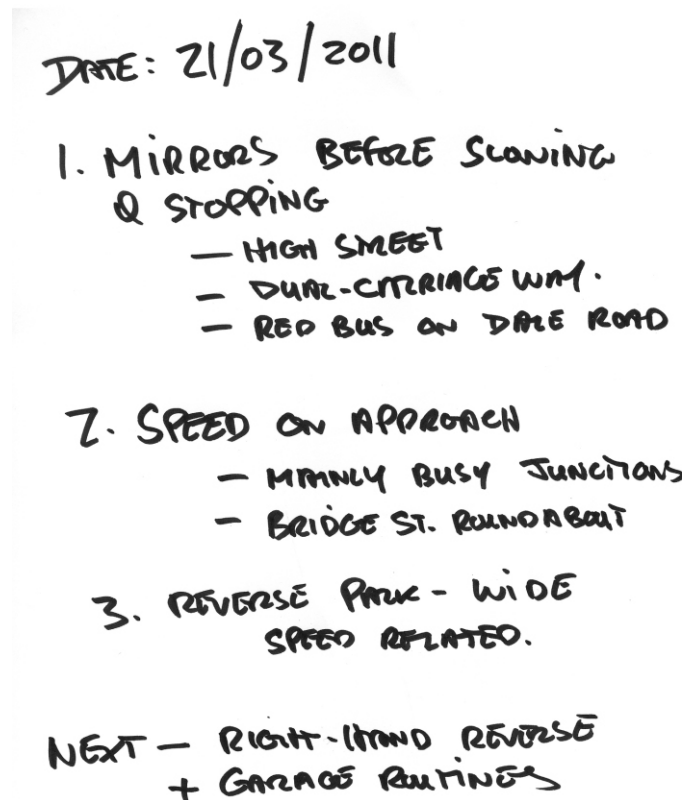 DATE: 21/03/2011
1. MIRRORS BEFORE SLOWING
& STOPPING
— HIGH STREET
— DUAL-CARRIAGE WAY.
— RED BUS ON DALE ROAD
2. SPEED ON APPROACH
— MAINLY BUSY JUNCTIONS
— BRIDGE ST. ROUNDABOUT
3. REVERSE PARK - WIDE
SPEED RELATED.
NEXT — RIGHT-HAND REVERSE
+ GARAGE ROUTINES